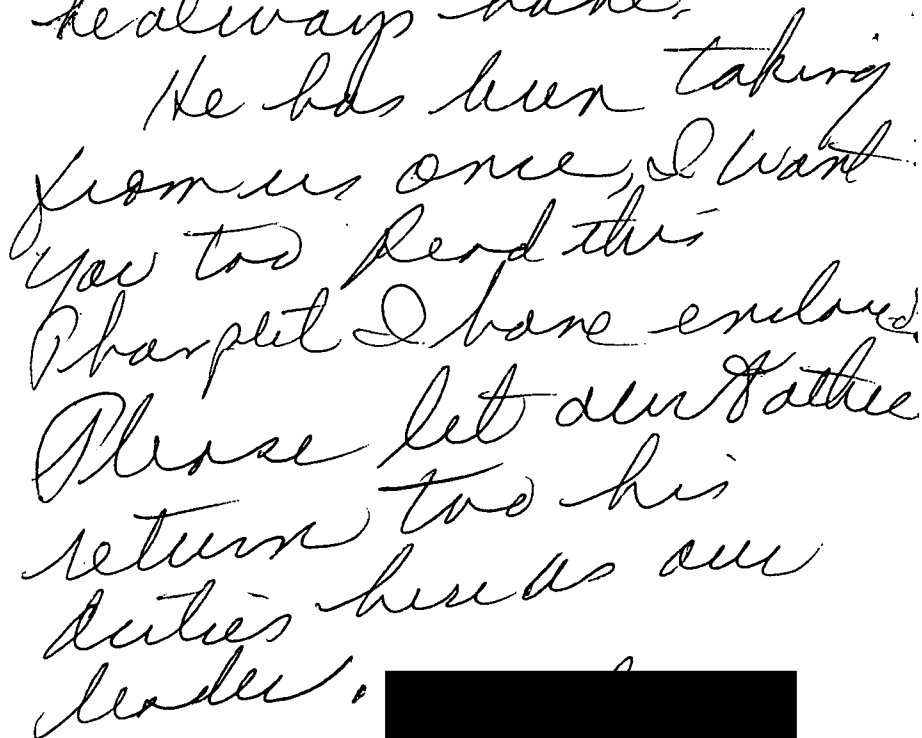 he always have.
He has been taking
from us once, I want
you too Read this
Phamplet I have enclosed.
Please let our Father
return too his
duties here as our
leader.